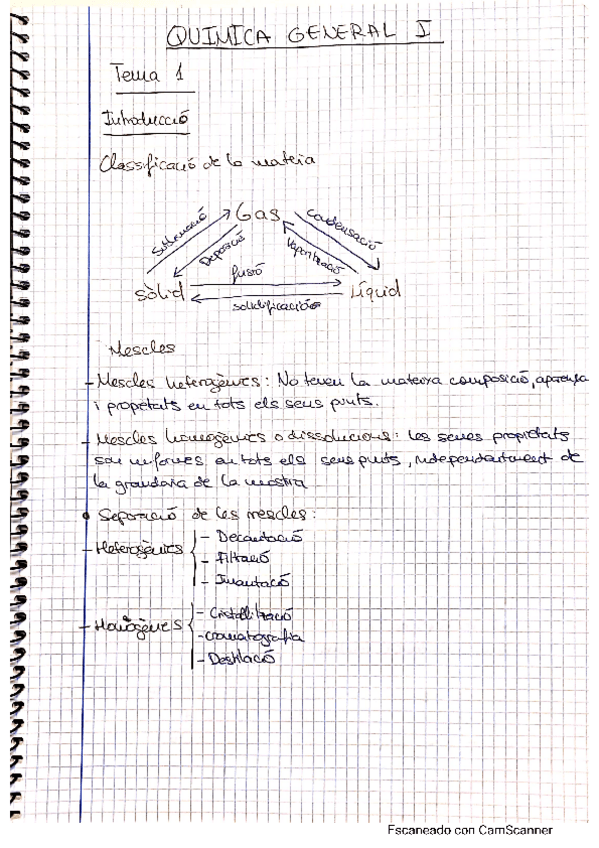 QUIMICA GENERAL I
Tema 1
Introducció
Classificació de la matèria
Gas
Sublimació
Deposició
Condensació
Vaporització
sòlid
fusió
Líquid
solidificació
Mescles
- Mescles heterogènies: No tenen la mateixa composició, aparença
i propietats en tots els seus punts.
- Mescles homogènies o dissolucions: les seves propietats
son uniformes en tots els seus punts, independentment de
la grandària de la mostra
• Separació de les mescles:
- Heterogènies
- Decantació
- Filtració
- Imantació
- Homogènies
- Cristallització
- cromatografia
- Destilació
Escaneado con CamScanner